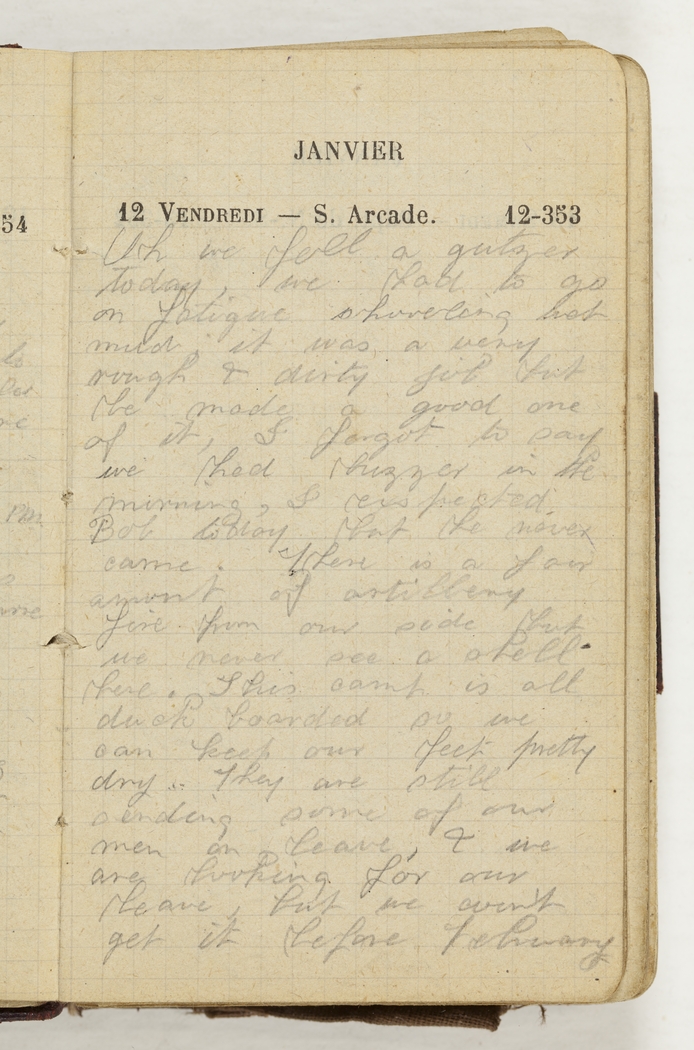 JANVIER
12 VENDREDI — S. Arcade. 12-353
54
Uh we fell a gutzer
today, we had to go
on fatigue shoveling wet
mud, it was a very
rough & dirty job but
be made a good one
of it, I forgot to say
we had buzzer in the
morning, I expected
Bob today but he never
came. There is a fair
amont of artillery
fire from our side but
we never see a shell
here. This camp is all
duck boarded so we
can keep our feet pretty
dry.. They are still
sending some of our
men on leave, & we
are looking for our
leave, but we won't
get it before February